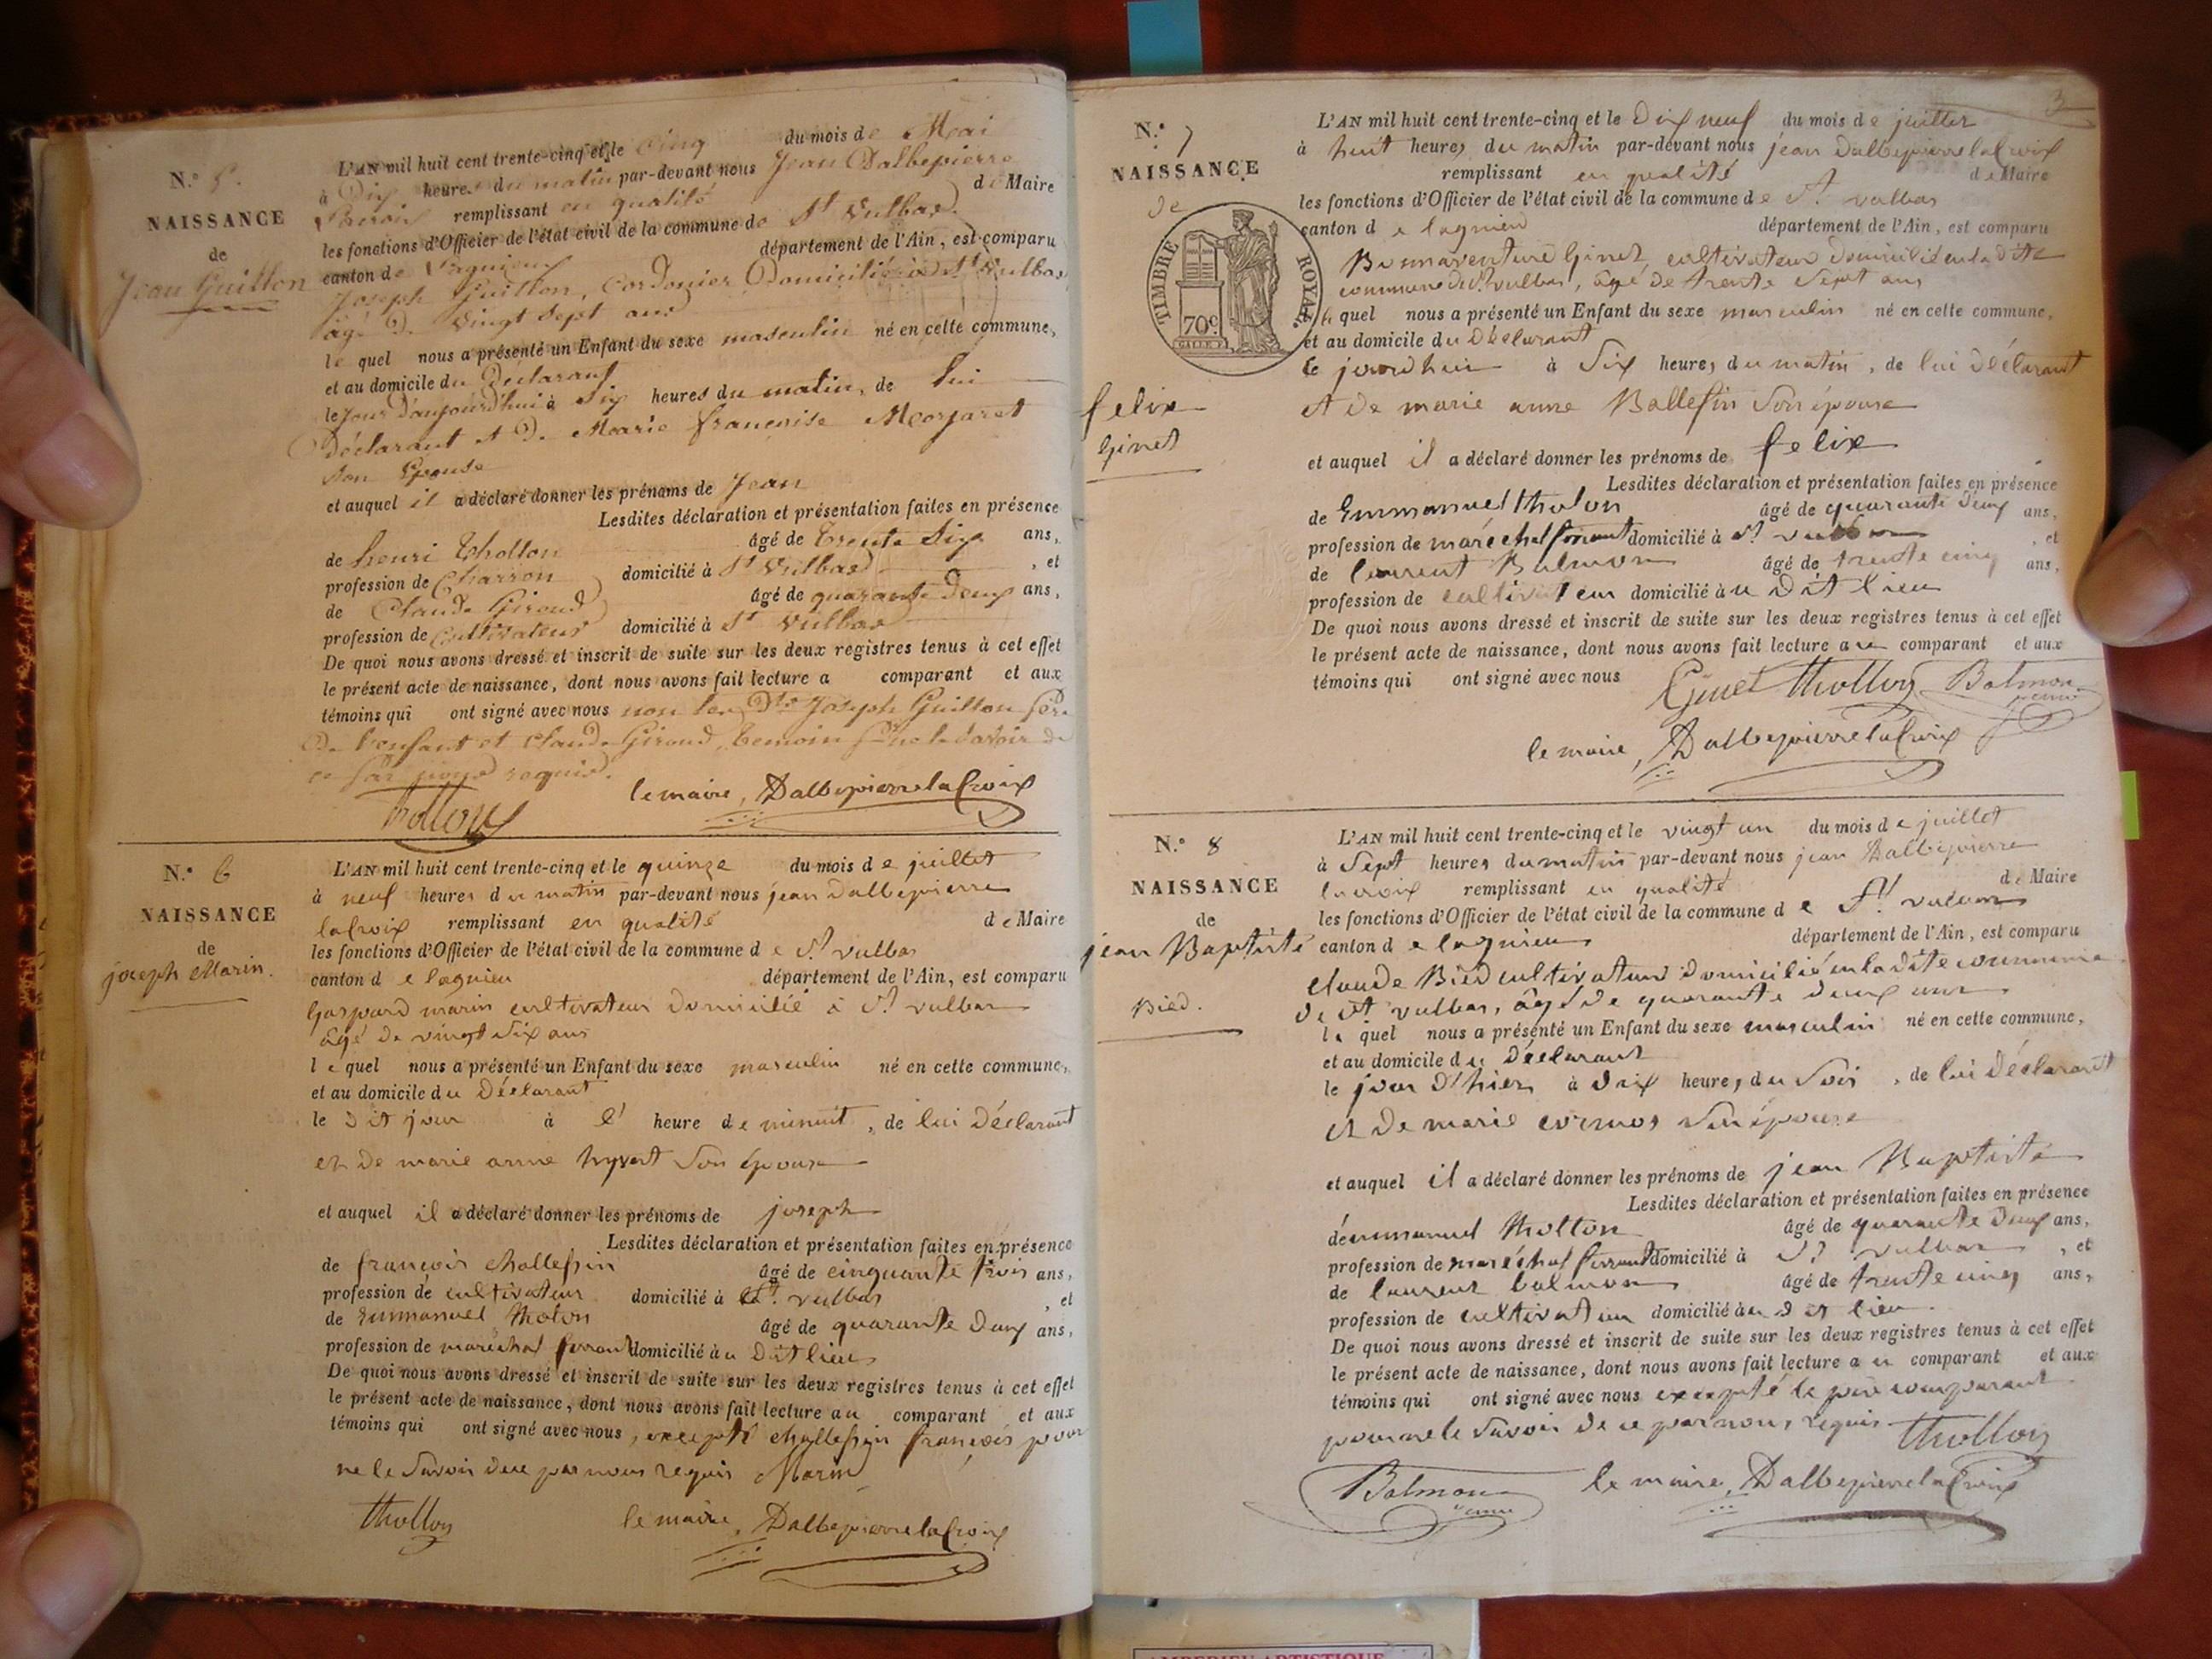 N.° 5.
NAISSANCE
de
Jean Guitton
L'AN mil huit cent trente-cinq et le cinq du mois de Mai
à Dix heures du matin par-devant nous Jean Dalbepierre
remplissant en qualité de Maire
les fonctions d'Officier de l'état civil de la commune de St Vulbas
canton de Lagnieu département de l'Ain, est comparu
Joseph Guitton, Cordonier, Domicilié à St Vulbas
âgé De vingt Sept ans
le quel nous a présenté un Enfant du sexe masculin né en cette commune,
et au domicile du Déclarant
le jour d'aujourd'hui à Six heures du matin, de lui
Déclarant et De Marie françoise Morjaret
Son Epouse
et auquel il a déclaré donner les prénoms de Jean
Lesdites déclaration et présentation faites en présence
de henri thollon âgé de trente Six ans,
profession de Charron domicilié à St Vulbas, et
de Claude Giroud âgé de quarante Deux ans,
profession de Cultivateur domicilié à St Vulbas
De quoi nous avons dressé et inscrit de suite sur les deux registres tenus à cet effet
le présent acte de naissance, dont nous avons fait lecture a comparant et aux
témoins qui ont signé avec nous non les Dts Joseph Guitton père
De l'enfant et Claude Giroud, temoin pr ne le Savoir de
ce par nous requis.
le maire, Dalbepierrelacroix
thollon
N.° 6
NAISSANCE
de
joseph Marin.
L'AN mil huit cent trente-cinq et le quinze du mois de juillet
à neuf heures du matin par-devant nous jean Dalbepierre
lacroix remplissant en qualité de Maire
les fonctions d'Officier de l'état civil de la commune de St vulbas
canton de lagnieu département de l'Ain, est comparu
Gaspard marin cultivateur Domicilié à St vulbas
âgé de vingt Six ans
le quel nous a présenté un Enfant du sexe masculin né en cette commune,
et au domicile du Déclarant
le Dit jour à l' heure de minuit, de lui Déclarant
et De marie anne hyvert Son épouse
et auquel il a déclaré donner les prénoms de joseph
Lesdites déclaration et présentation faites en présence
de françois challessin âgé de cinquante trois ans,
profession de cultivateur domicilié à St. vulbas, et
de Emmanuel tholon âgé de quarante Deux ans,
profession de maréchal ferrant domicilié au Dit lieu
De quoi nous avons dressé et inscrit de suite sur les deux registres tenus à cet effet
le présent acte de naissance, dont nous avons fait lecture au comparant et aux
témoins qui ont signé avec nous, excepté challessin françois pour
ne le Savoir de ce par nous requis Marin
thollon le maire, Dalbepierrelacroix
3
N.° 7
NAISSANCE
de
felix
Ginet
TIMBRE ROYAL
70c
L'AN mil huit cent trente-cinq et le Dix neuf du mois de juillet
à huit heures du matin par-devant nous jean Dalbepierrelacroix
remplissant en qualité de Maire
les fonctions d'Officier de l'état civil de la commune de St. vulbas
canton de lagnieu département de l'Ain, est comparu
Bonnaventure Ginet, cultivateur Domicilié en la dite
commune de St. vulbas, âgé de trente Sept ans
le quel nous a présenté un Enfant du sexe masculin né en cette commune,
et au domicile du Déclarant
le jourdhui à Six heures du matin, de lui déclarant
et De marie anne Ballessin Son épouse
et auquel il a déclaré donner les prénoms de felix
Lesdites déclaration et présentation faites en présence
de Emmanuel tholon âgé de quarante Deux ans,
profession de maréchal ferrant domicilié à St. vulbas, et
de laurent Balmon âgé de trente cinq ans,
profession de cultivateur domicilié au Dit lieu
De quoi nous avons dressé et inscrit de suite sur les deux registres tenus à cet effet
le présent acte de naissance, dont nous avons fait lecture au comparant et aux
témoins qui ont signé avec nous Ginet thollon Balmon
le maire, Dalbepierrelacroix
N.° 8
NAISSANCE
de
jean Baptiste
Bied.
L'AN mil huit cent trente-cinq et le vingt un du mois de juillet
à Sept heures du matin par-devant nous jean Dalbepierre
lacroix remplissant en qualité de Maire
les fonctions d'Officier de l'état civil de la commune de St. vulbas
canton de lagnieu département de l'Ain, est comparu
claude Bied cultivateur Domicilié en la dite commune
De St vulbas, âgé de quarante deux ans
le quel nous a présenté un Enfant du sexe masculin né en cette commune,
et au domicile du Déclarant
le jour d'hier à Dix heures du Soir, de lui Déclarant
et De marie cormos Son épouse
et auquel il a déclaré donner les prénoms de jean Baptiste
Lesdites déclaration et présentation faites en présence
d'emmanuel tholton âgé de quarante Deux ans,
profession de maréchal ferrant domicilié à St. vulbas, et
de laurent balmon âgé de trente cinq ans,
profession de cultivateur domicilié au Dit lieu.
De quoi nous avons dressé et inscrit de suite sur les deux registres tenus à cet effet
le présent acte de naissance, dont nous avons fait lecture au comparant et aux
témoins qui ont signé avec nous excepté le père comparant
pour ne le Savoir de ce par nous requis thollon
Balmon le maire, Dalbepierrelacroix
AMBERIEU ARTISTIQUE